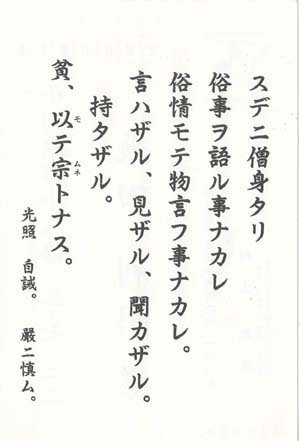 スデニ僧身タリ
俗事ヲ語ル事ナカレ
俗情モテ物言フ事ナカレ。
言ハザル、見ザル、聞カザル。
持タザル。
貧、以テ宗トナス。
モ ムネ
光照 自誡。 嚴ニ慎ム。